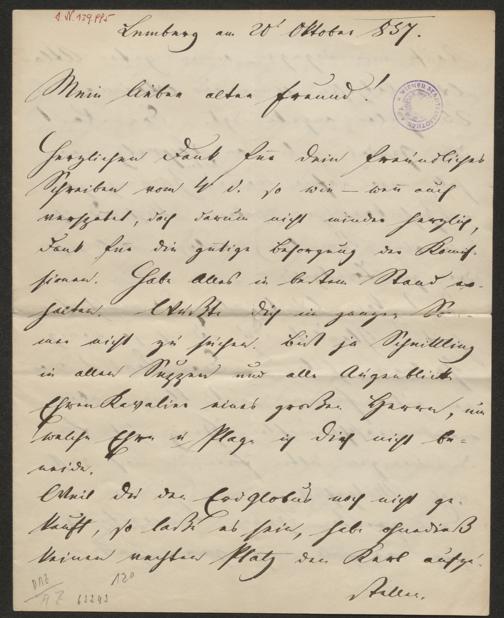 I.N. 139.995
Lemberg am 20t Oktober 857.
WIENER STADTBIBLIOTHEK
Mein lieber alter Freund!
Herzlichen Dank für dein freundliches
Schreiben vom 4 d. so wie – wen̅ auch
verspätet, doch darum nicht minder herzlich,
Dank für die gütige Besorgung der Komis-
sionen. Habe Alles in bestem Stand er-
halten. Wußte dich im ganzen Som-
mer nicht zu suchen. Bist ja Schnittling
in allen Suppen und alle Augenblick
Ehren Kavalier eines großen Herren, um
welche Ehre u Plage ich dich nicht be-
neide.
Weil du den Erdglobus noch nicht ge-
kauft, so laße es sein, habe ohnedieß
keinen rechten Platz den Kerl aufzu-
stellen.
120